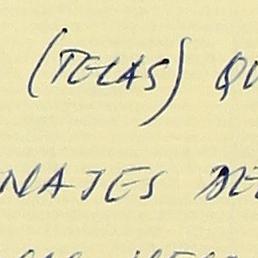 (TELAS) QU
NAJES DE